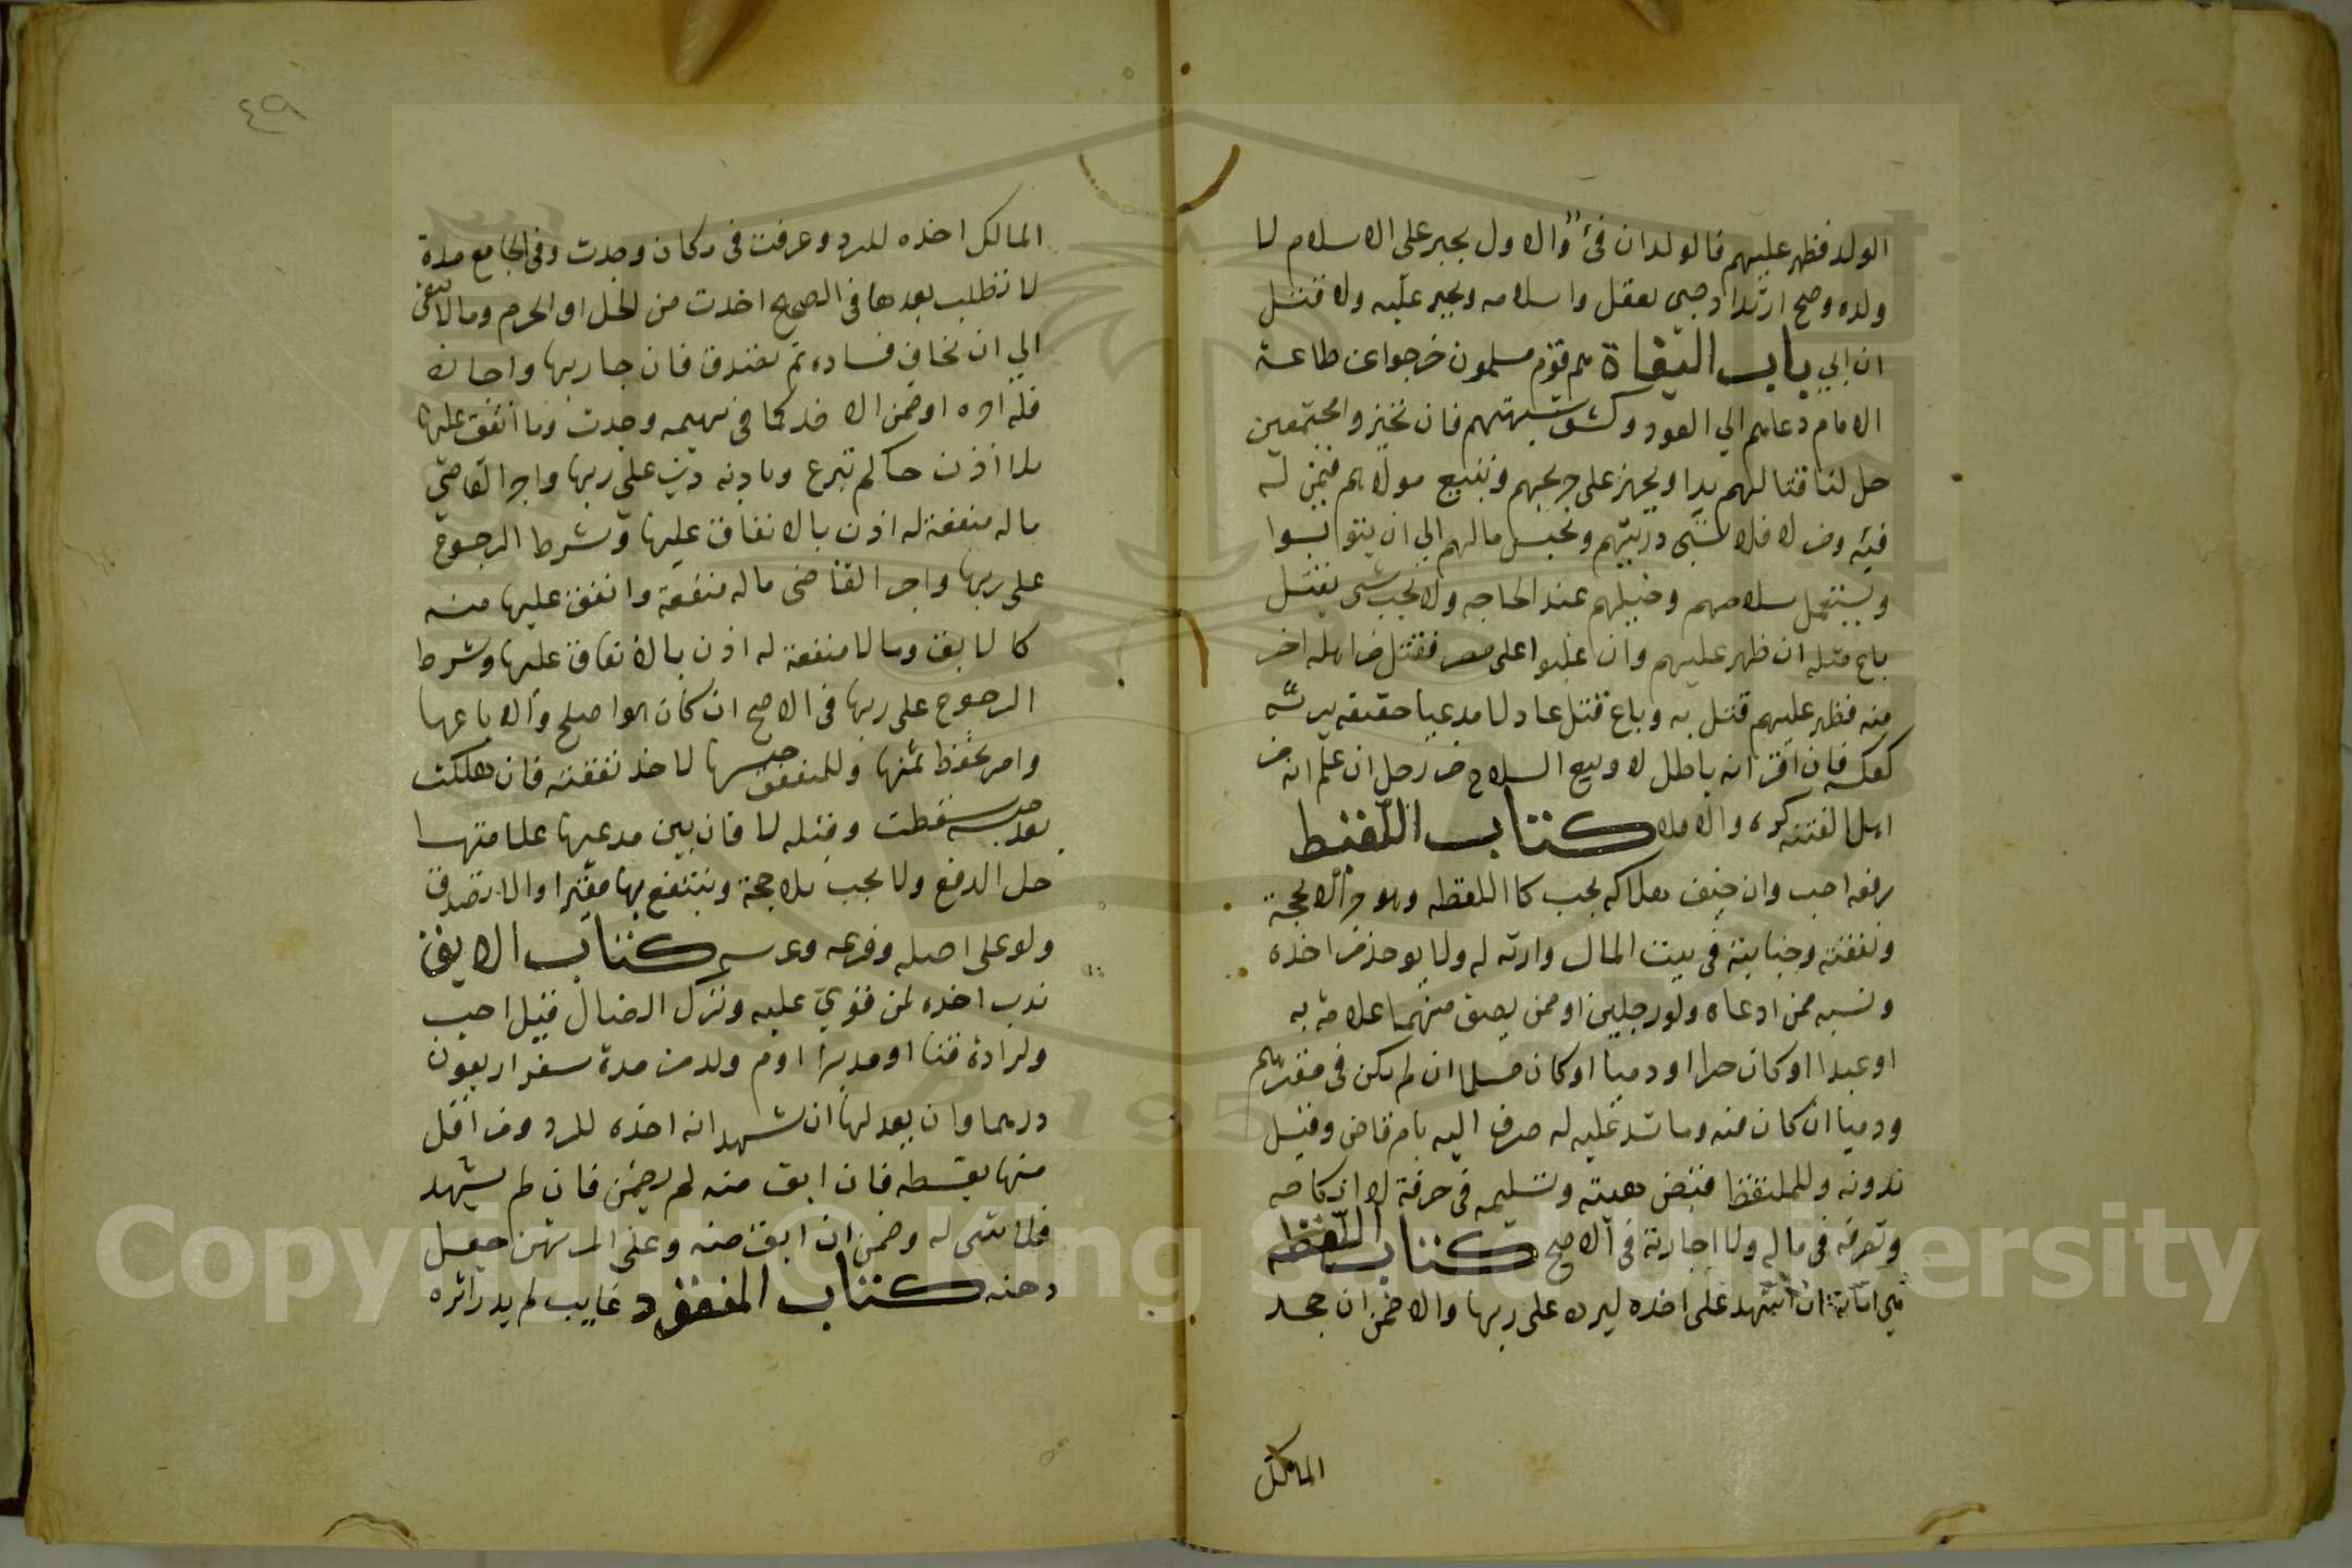 الولد فظهر عليهم فالولدان فئ والاول يجبر على الاسلام لا
ولده وصح ارتداد صبى يعقل واسلامه ويجبر عليه ولا قتل
ان ابي باب البغاة هم قوم مسلمون خرجوا عن طاعة
الامام دعاهم الي العود وكشف شبهتهم فان تحيزوا مجتمعين
حل لنا قتالهم بدا ويجهز على جريحهم ونتبع مولاهم فيمن له
فيه ومن لا فلا تسبى دريتهم ونحبس مالهم الي ان يتوابوا
ويستعمل سلاحهم وخيلهم عند الحاجه ولا يجب شى بقتل
باع مثله ان ظهر عليهم وان غلبوا على مصر فقتل من اهله اخر
منه فظهر عليهم قتل به وباغ قتل عادلا مدعيا حقيقه يرثه
كعكسه فان اقر انه باطل لا وبيع السلاح من رجل ان علم انه من
اهل الفتنه كره والا فلا كتاب اللقيط
رفعه احب وان خيف هلاكه يجب كا اللقطه وهو حر الا بحجة
ونفقته وجنايته في بيت المال وارثه له ولا يوخذ من اخذه
ونسبه ممن ادعاه ولو رجلين او ممن يصف منهما علامة به
او عبدا وكان حرا او دميا وكان مسلما ان لم يكن فى مقرهم
ودميا ان كان منه وما شد عليه له صرف اليه بام قاض وقيل
بدونه وللملتقط قبض هبته وتسليمه فى حرفة لا انكاحه
وتصرفه فى ماله ولا اجارته فى الاصح كتاب اللقطه
هي امانة ان اشهد على اخذه ليرد على ربها والا ضمن ان جحد
المالك
٤٩
المالك اخذه للرد وعرفت فى مكان وجدت وفى الجامع مدة
لا تطلب بعدها فى الصحيح اخذت من الحل او الحرم وما لا يبقى
الي ان يخاف فساده ثم تصدق فان جا ربها واجازه
فله اجره او ضمن الاخذ كما فى بهيمه وجدت وما انفق عليها
بلا اذن حاكم تبرع وباذنه دين على ربها واجر القاضي
ماله منفعة له اذن بالانفاق عليها وشرط الرجوع
على ربها واجر القاضى ماله منفعة وانفق عليها منه
كالابق وما لا منفعة له اذن بالانفاق عليها وشرط
الرجوع على ربها فى الاصح ان كان هو اصلح والا باعها
وامر بحفظ ثمنها وللمنفق حبسها لاخذ نفقته فان هلكت
بعد حبسه سقطت وقبله لا فان بين مدعيها علامتها
حل الدفع ولا يجب بلا حجة وينتفع بها فقيرا والا تصدق
ولو على اصله وفرعه وعرسه كتاب الابق
ندب اخذه لمن قوي عليه وترك الضال قيل احب
ولراده قنا او مدبرا او ام ولد من مدة سفر اربعون
درهما وان لم يعدلها ان شهد انه اخذه للرد ومن اقل
منها بقسطه فان ابق منه لم يضمن فان لم يشهد
فلا شى له وضمن ان ابق منه وعلى المرتهن جعل
رهنه كتاب المفقود غايب لم يدر اثره
Copyright © King Saud University